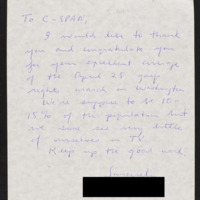 To C-SPAN,
I would like to thank
you and congratulate you
for your excellent coverage
of the April 25 gay
rights march in Washington
We're suppose to be 10-
15% of the population but
we sure see very little
of ourselves on TV.
Keep up the good work
Sincerely